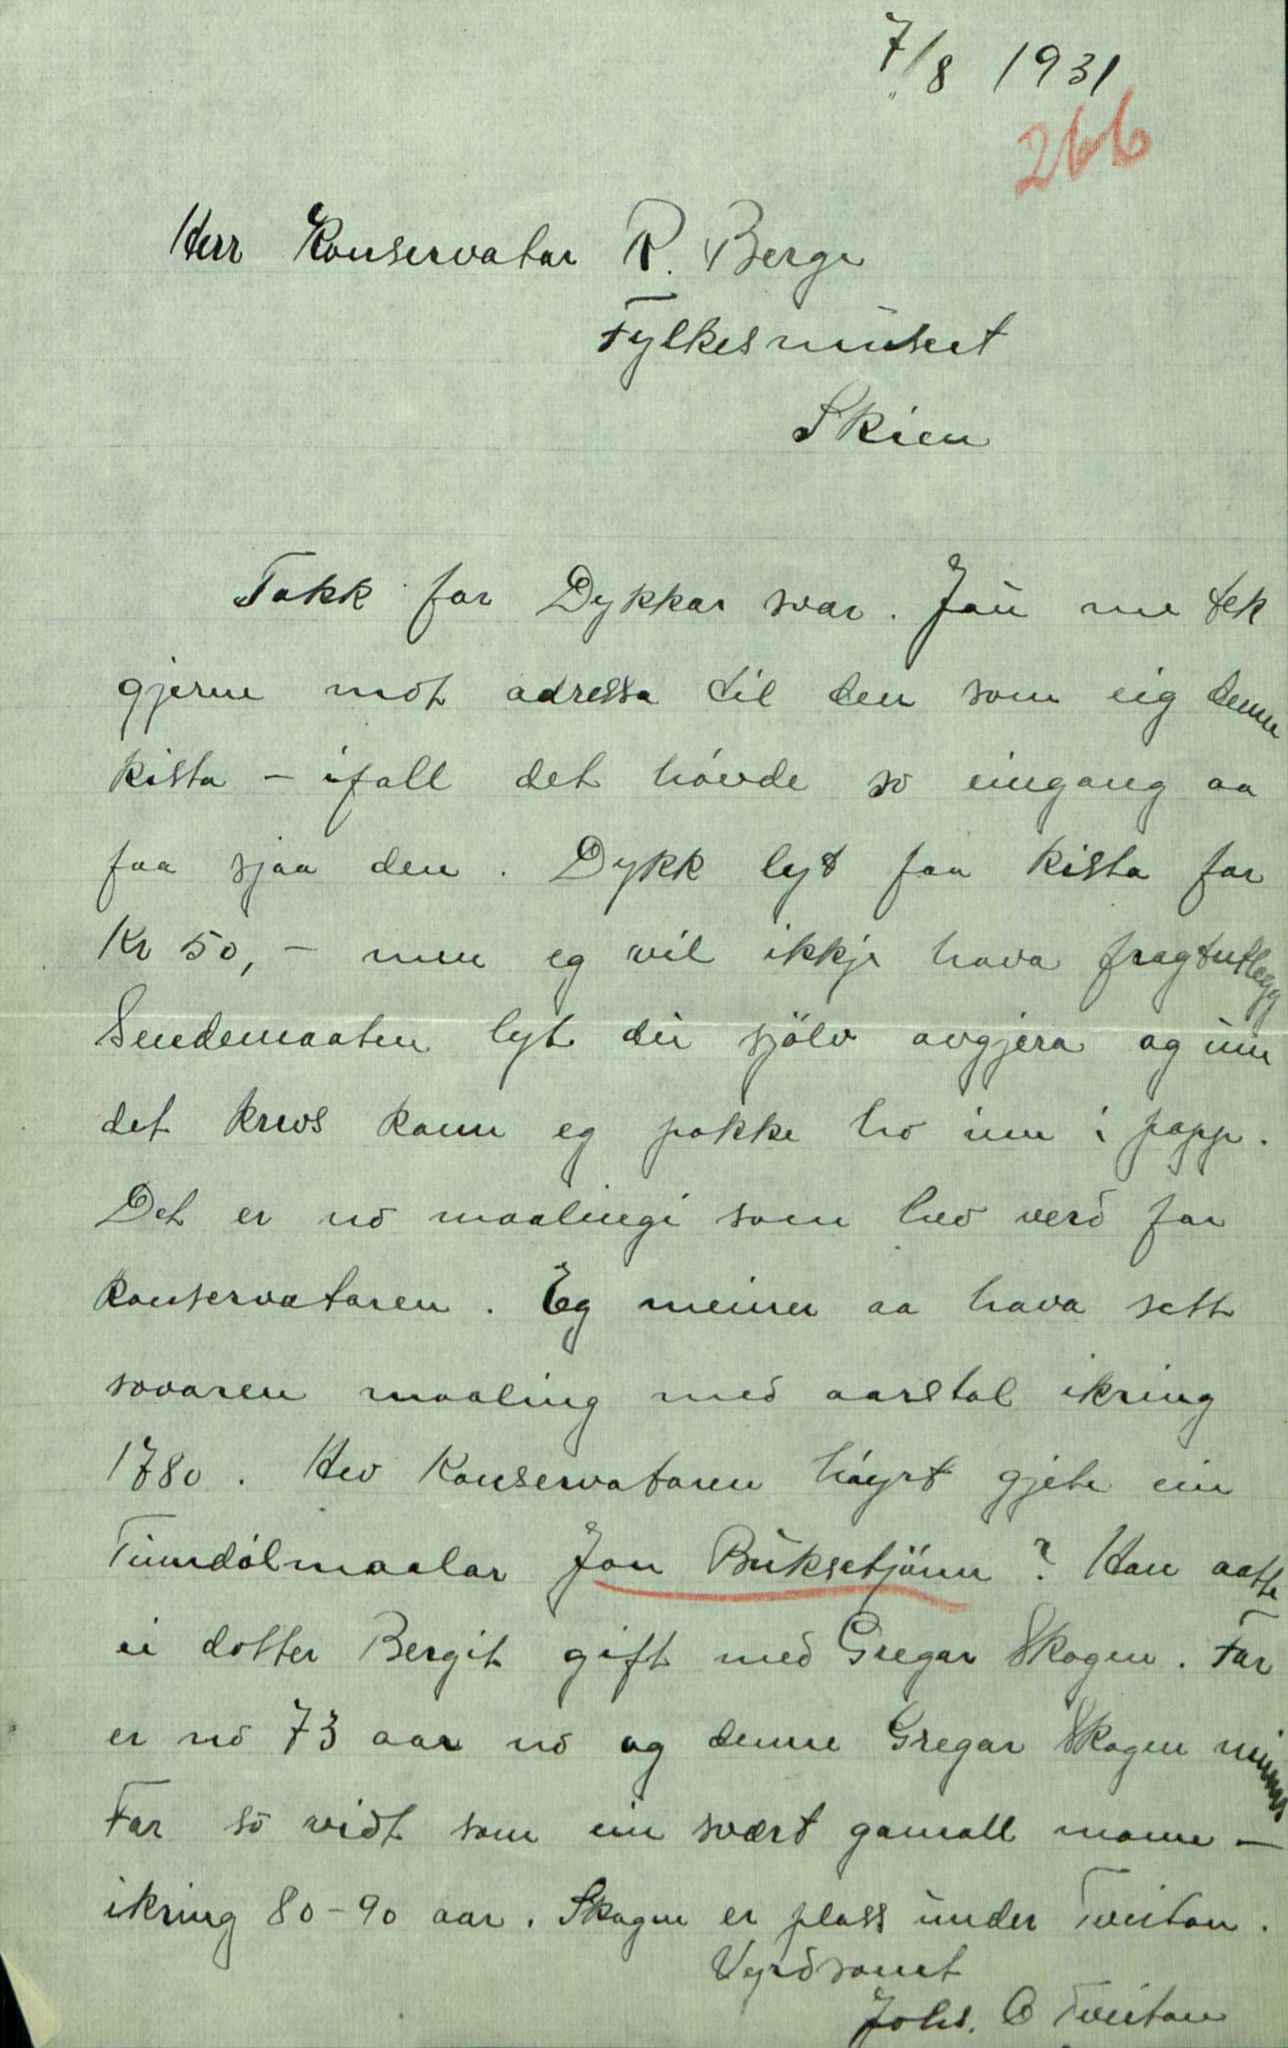 7/8 1931
266
Herr Konservator R. Berge
Fylkesmuseet
Skien
Takk for Dykkar svar. Jau me tek
gjerne mot adressa til den som eig denne
kista – ifall det hövde so eingang aa
faa sjaa den. Dykk lyt faa kista for
Kr 50,- men eg vil ikkje hava fragtutlegg
Sendemaaten lyt di sjölv avgjera og um
det krevs kann eg pakke ho inn i papp.
Det er no maalingi som hev verd for
konservatoren. Eg meiner aa hava sett
sovoren maaling med aarstal ikring
1780. Hev Konservatoren höyrt gjete ein
Tinndölmaalar Jon Buksetjönn? Han aatte
ei dotter Bergit gift med Gregar Skogen. Far
er no 73 aar no og denne Gregar Skogen minnest
Far so vidt som ein svært gamall mann –
ikring 80-90 aar. Skogen er plass under Tveitan.
Vyrdsamt
Johs. O Tveitan